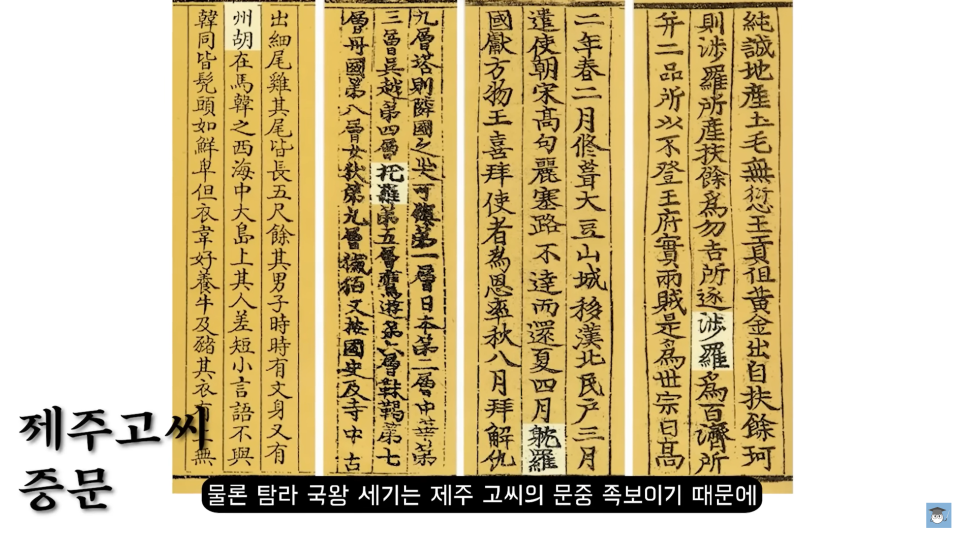 出細尾雞其尾皆長五尺餘其男子時時有文身又有
州胡在馬韓之西海中大島上其人差短小言語不與
韓同皆髡頭如鮮卑但衣韋好養牛及豬其衣有無
九層塔則隣國之灾可鎮第一層日本第二層中華第
三層吳越第四層托羅第五層鷹遊第六層靺鞨第七
層丹國第八層女狄第九層穢貊又按國史及寺中古
二年春二月修葺大豆山城移漢北民戶三月
遣使朝宋高句麗塞路不達而還夏四月躭羅
國獻方物王喜拜使者為恩率秋八月拜解仇
純誠地產土毛無愆王貢但黃金出自扶餘珂
則涉羅所產扶餘為勿吉所逐涉羅為百濟所
弁二品所以不登王府實兩賊是爲世宗曰高
제주고씨
중문
물론 탐라 국왕 세기는 제주 고씨의 문중 족보이기 때문에